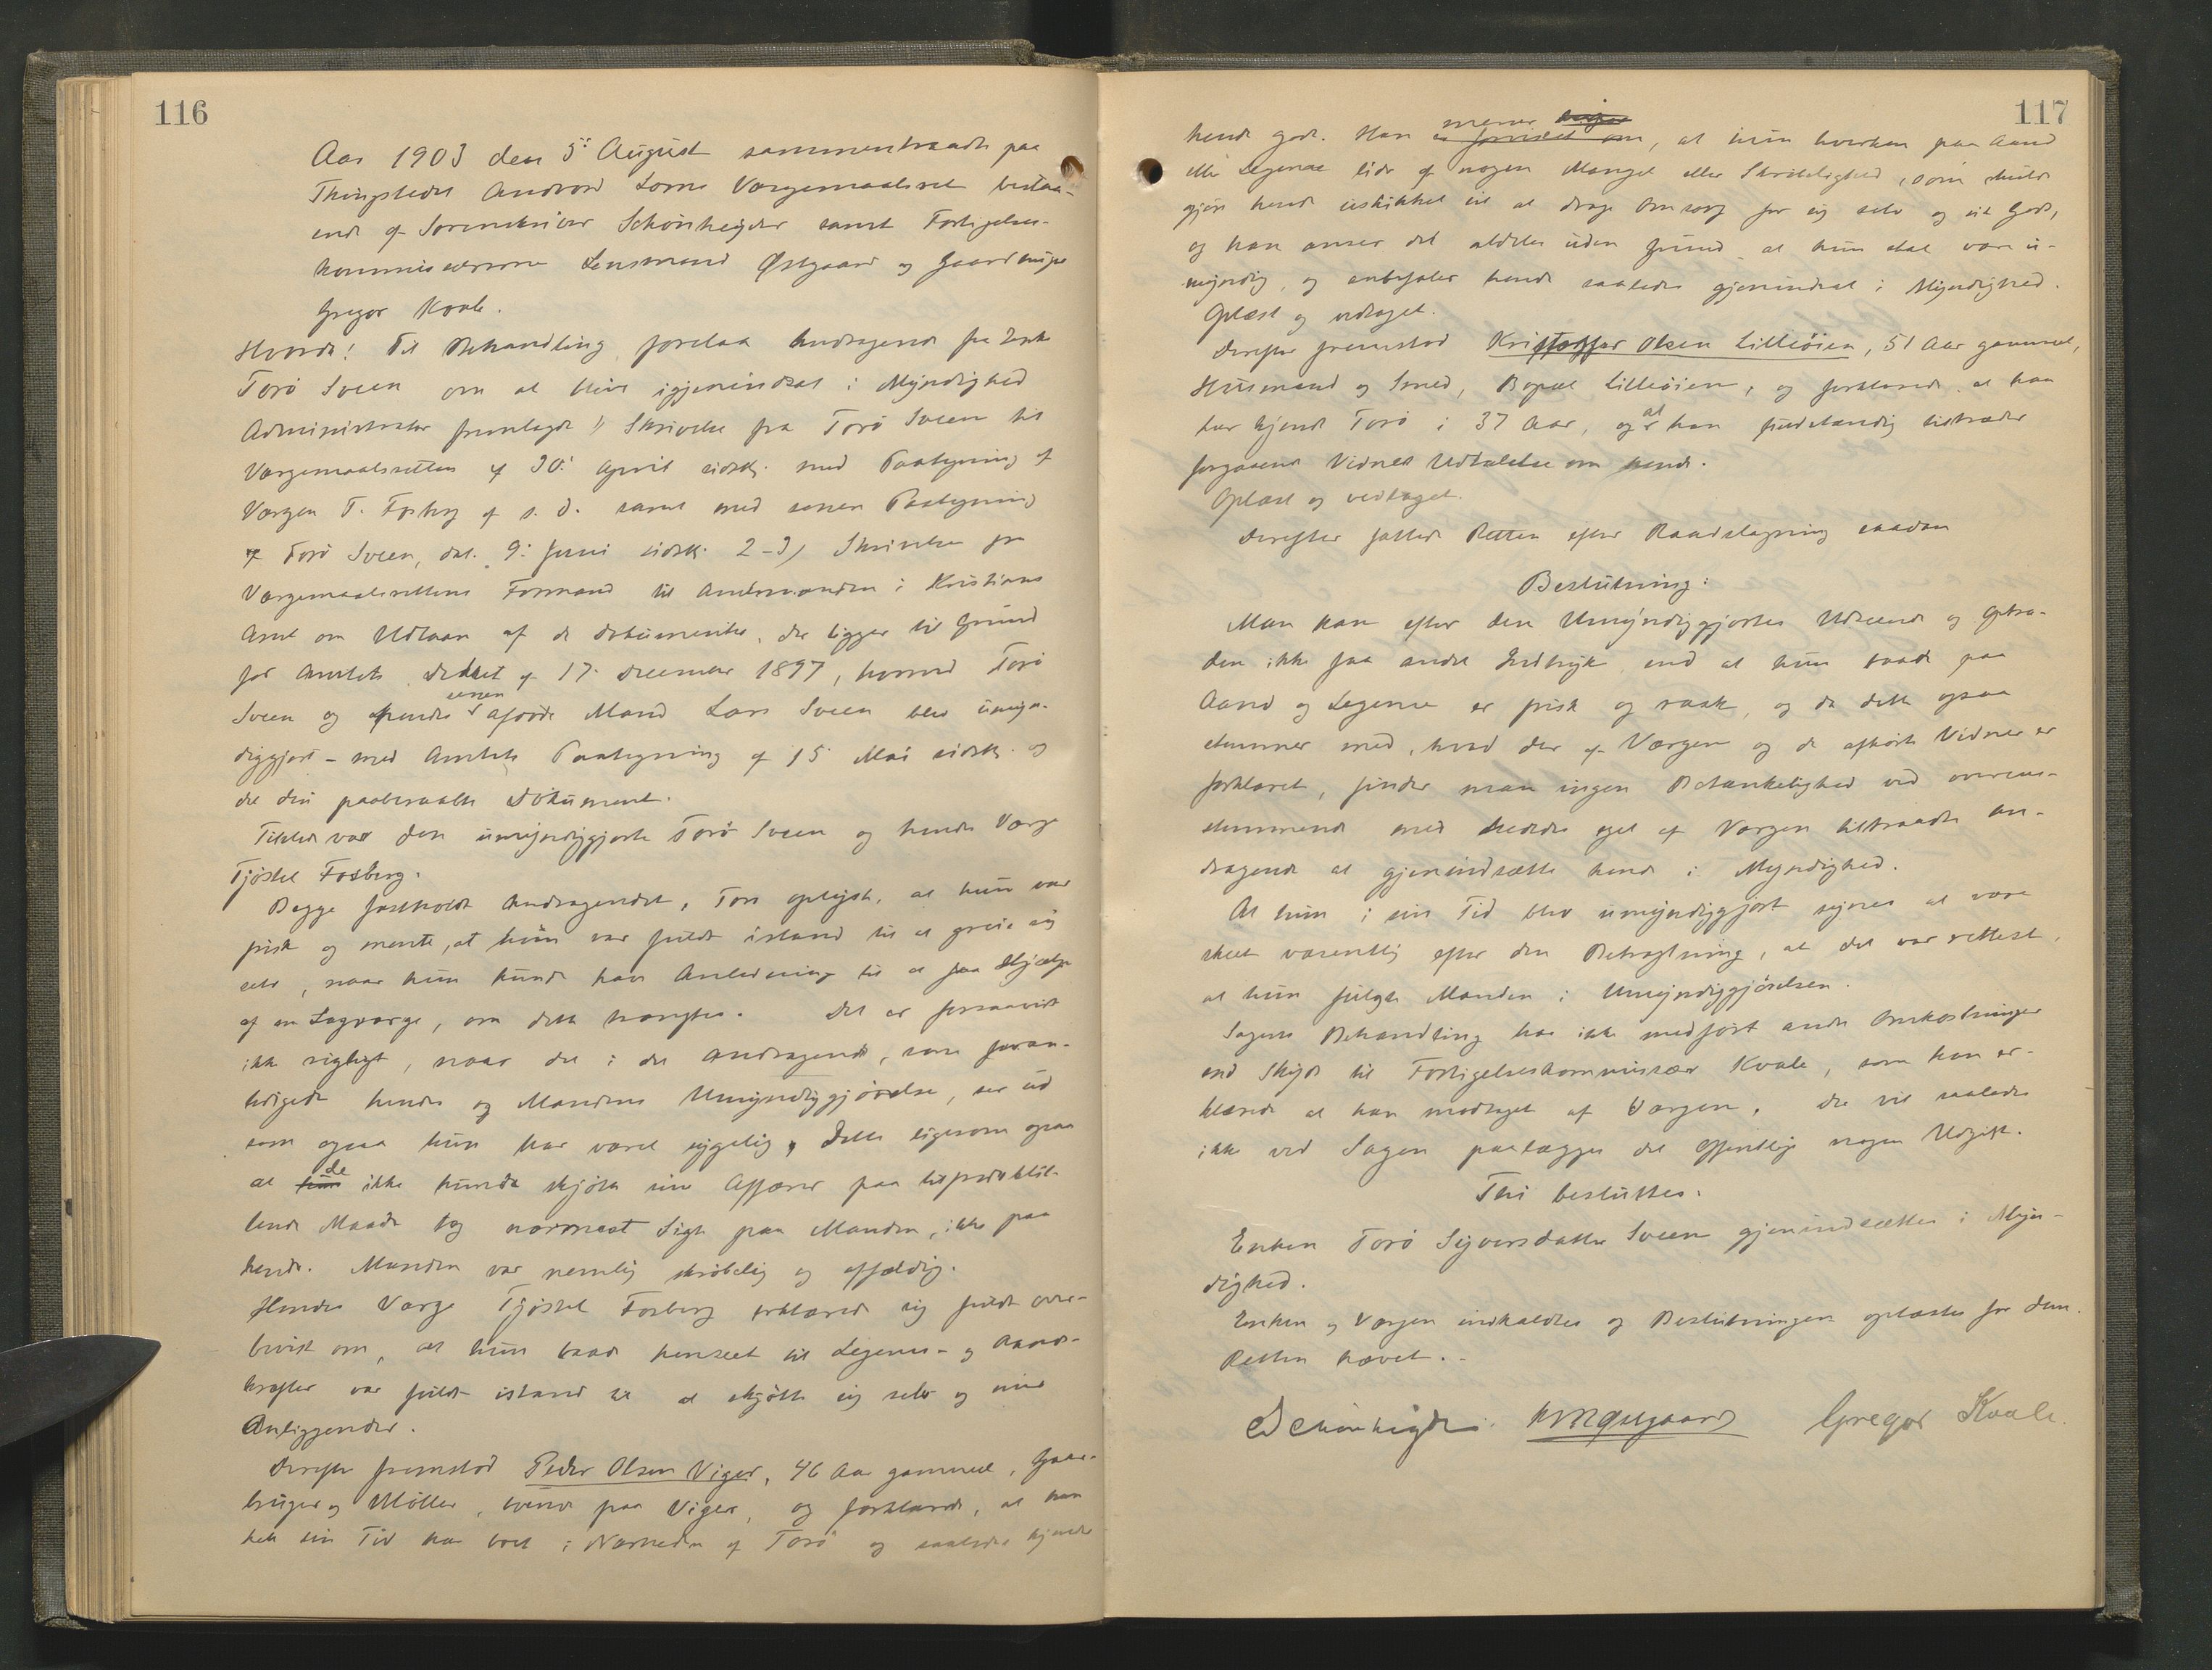 116
Aar 1903 den 5: August sammentraadte paa
Thingstedet Andvord Loms Værgemaalsret bestaa-
ende af Sorenskriver Schönheyder samt Forligelses-
kommissærerne Lensmand Østgaard og Gaardbruger
Gregor Kvale.
Hvorda! Til Behandling forelaa Andragende fra Enke
Torö Sveen om at blive igjenindsat i Myndighed
Administrator fremlagde 1) Skrivelse fra Torö Sveen til
Værgemaalsretten af 30: April sidstl. med Paategning af
Værgen T. Fosberg af s. D. samt med senere Paategning
af Torö Sveen, dat. 9: Juni sidstl. 2-3) Skrivelse fra
Værgemaalsrettens Formand til Amtmanden i Kristians
Amt om Udlaan af de Dokumenter, der ligger til Grund
for Amtets Dekret af 17. December 1897, hvorved Torö
Sveen og hendes senere afdøde Mand Lars Sveen blev umyn-
diggjort - med Amtets Paategning af 15 Mai sidstl. og
det deri paaberaabte Dokument.
Tilstede var den umyndiggjorte Torö Sveen og hendes Værge
Tjöstel Fosberg.
Begge fastholdt Andragendet, Torö oplyste, at hun var
frisk og mente, at hun var fuldt istand til at greie sig
selv, naar hun kunde have Anledning til at faa Hjælp
af en Lagværge, om dette trængtes. Det er forsaavidt
ikke rigtigt, naar det i det Andragende, som foran-
ledigede hendes og Mandens Umyndiggjörelse, ser ud
som ogsaa hun har været sygelig, Dette ligesom ogsaa
at hun de ikke kunde skjötte sine Affærer paa tilfredsstil-
lende Maade tog nærmest Sigte paa Manden, ikke paa
hende. Manden var nemlig skröbelig og affældig.
Hendes Værge Tjöstel Fosberg erklærede sig fuldt over-
bevist om, at hun baade henseet til Legems- og Aands-
kræfter var fuldt istand til at skjötte sig selv og sine
Anliggender.
Derefter fremstod Peder Olsen Viger, 46 Aar gammel, Gaar-
bruger og Möller, boende paa Viger, og forklarede, at han
hele sin Tid har boet i Nærheden af Torö og saaledes kjender
117
hende godt. Han er forvisset om mener, at hun hverken paa Aand
eller Legeme lider af nogen Mangel eller Skröbelighed, som skulde
gjöre hende uskikket til at drage Omsorg for sig selv og sit Gods,
og han anser det aldeles uden Grund at hun skal være u-
myndig, og anbefaler hende saaledes gjenindsat i Myndighed.
Oplæst og vedtaget.
Derefter fremstod Kristoffer Olsen Lilleöien, 51 Aar gammel,
Husmand og Smed, Bopæl Lilleöien, og forklarede at han
har kjendt Torö i 37 Aar, og at han fuldstændig tiltræder
forgaaende Vidnes Udtalelse om hende.
Oplæst og vedtaget.
Derefter fattede Retten efter Raadslagning saadan
Beslutning:
Man kan efter den Umyndiggjortes Udseende og Optræ-
den ikke faa andet Indtryk end at hun baade paa
Aand og Legeme er frisk og rask, og da dette ogsaa
stemmer med, hvad der af Værgen og de afhörte Vidner er
forklaret, finder man ingen Betænkelighed ved overens-
stemmende med hendes eget af Værgen tiltraadte An-
dragende at gjenindsætte hende i Myndighed.
At hun i sin Tid blev umyndiggjort synes at være
skeet væsentlig efter den Betragtning, at det var rettest,
at hun fulgte Manden i Umyndiggjörelsen.
Sagens Behandling har ikke medfört andre Omkostninger
end Skyds til Forligelseskommissær Kvale, som han er-
klærede at han modtaget af Værgen. Der vil saaledes
ikke ved Sagen paalægges det Offentlige nogen Udgift.
Thi besluttes:
Enken Torö Syversdatter Sveen gjenindsættes i Myn-
dighed.
Enken og Værgen indkaldtes og Beslutningen oplæstes for dem.
Retten hævet.
Schönheyder. Østgaard Gregor Kvale.